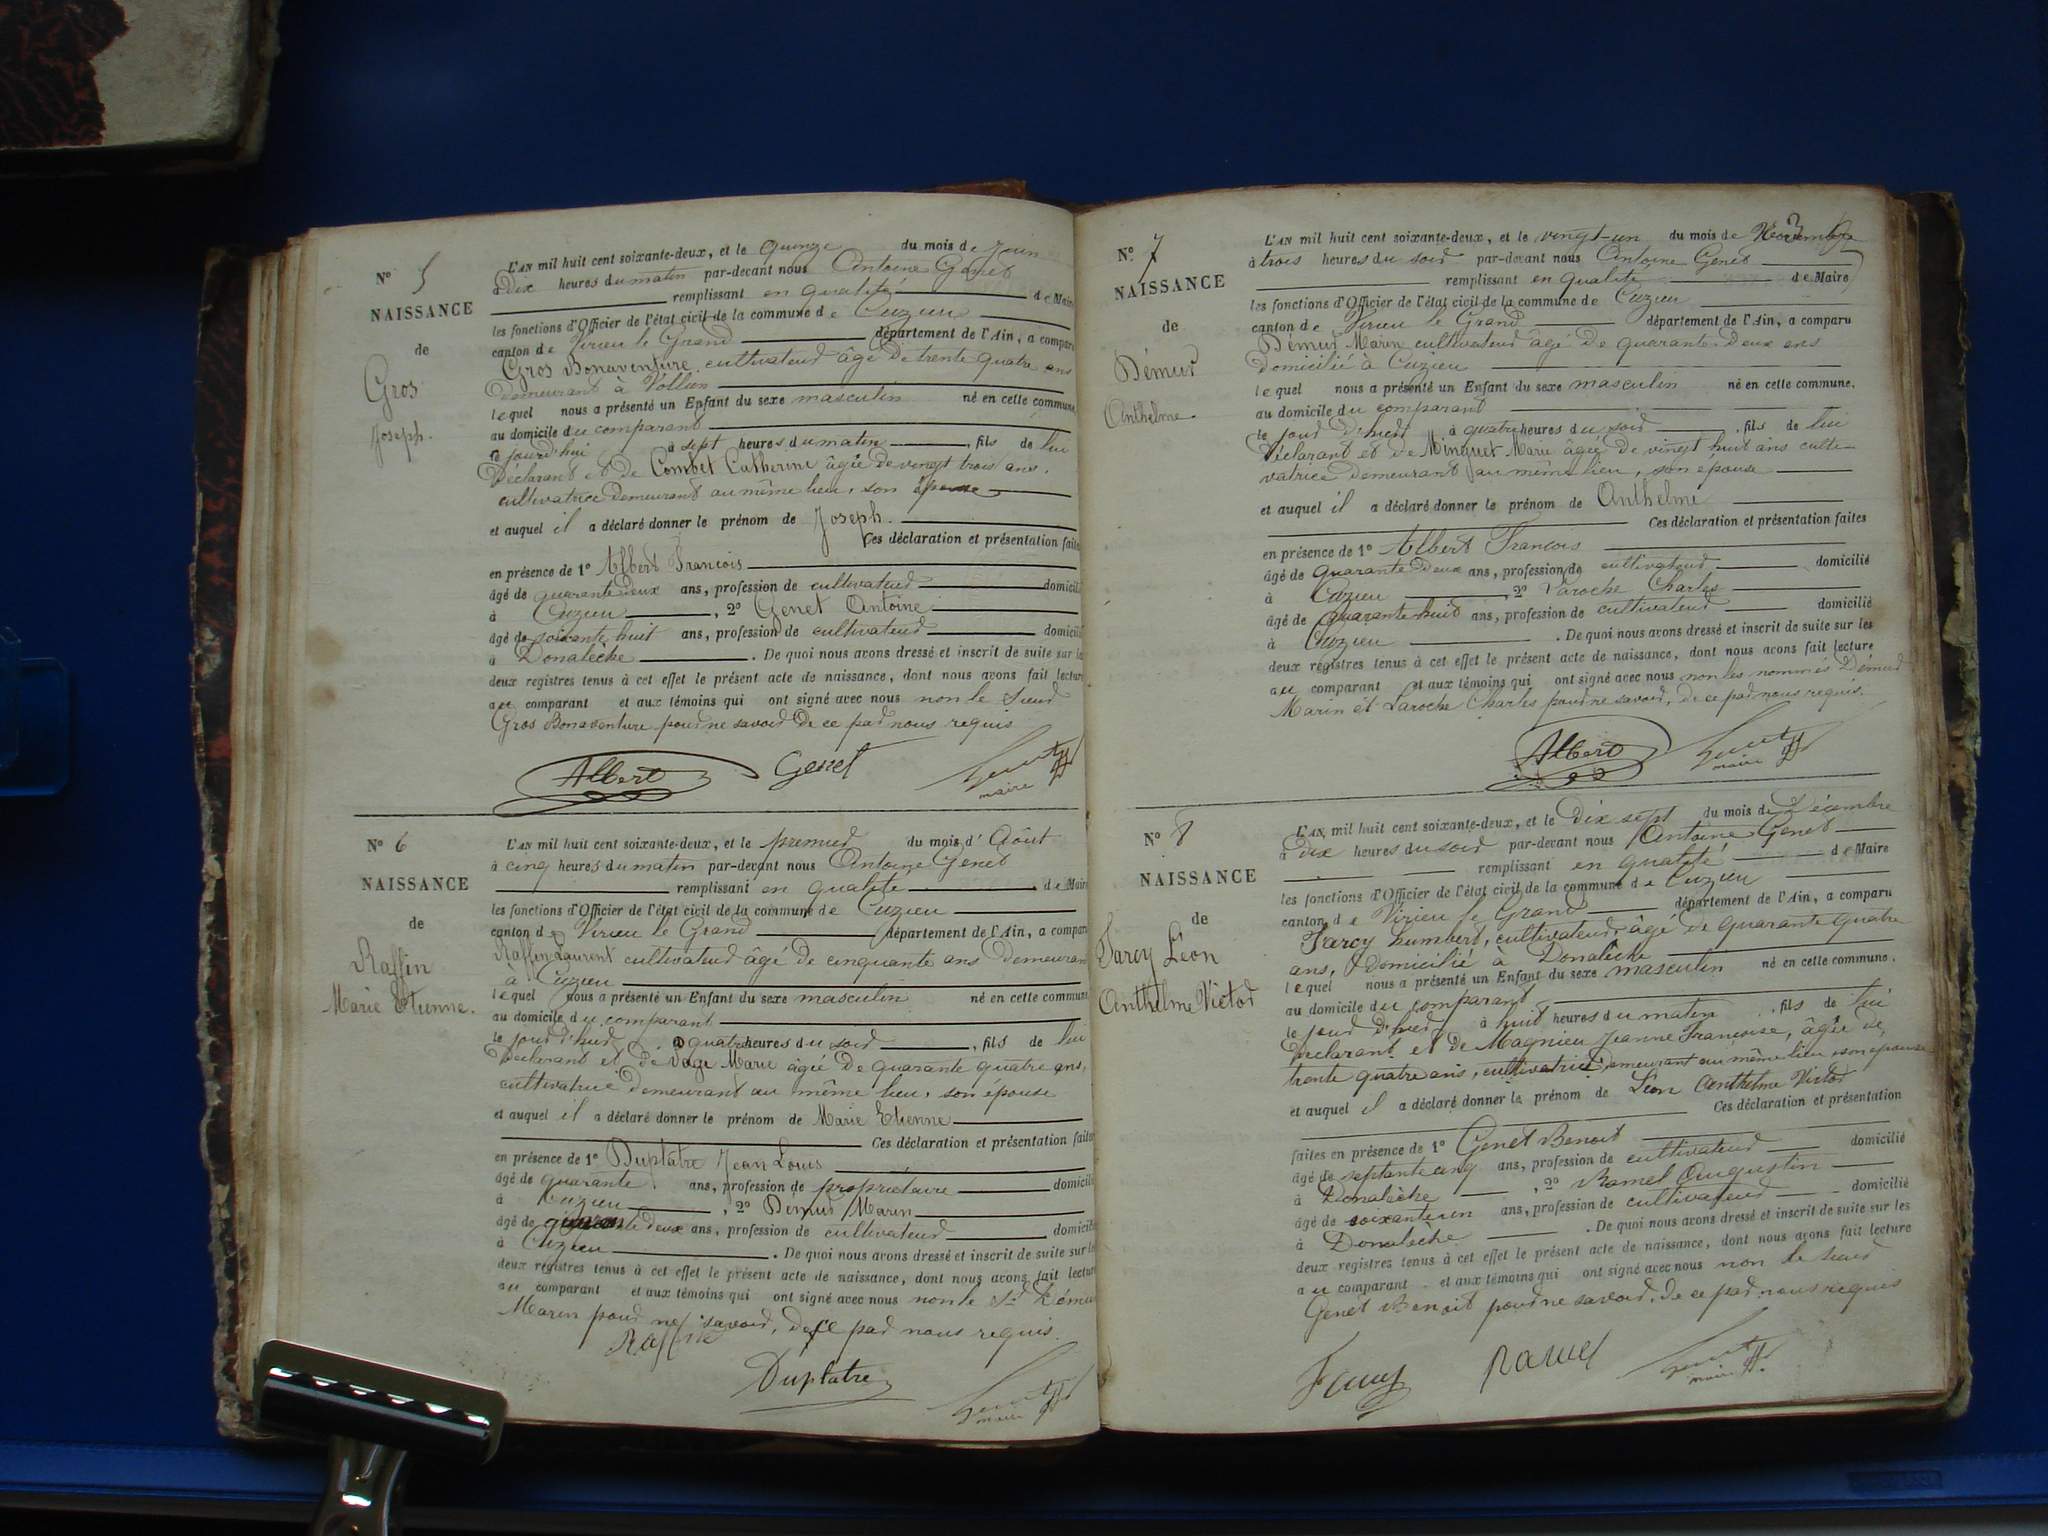 N° 5
NAISSANCE
de
Gros
Joseph.
L'AN mil huit cent soixante-deux, et le quinze du mois de Juin
à Dix heures du matin par-devant nous Antoine Genet
remplissant en qualité de Maire
les fonctions d'Officier de l'état civil de la commune de Cuzieu
canton de Virieu le Grand département de l'Ain, a comparu
Gros Bonaventure cultivateur âgé de trente quatre ans
demeurant à Vollien
lequel nous a présenté un Enfant du sexe masculin né en cette commune,
au domicile du comparant
ce jourd'hui à sept heures du matin, fils de lui
Déclarant et de Combet Catherine âgée de vingt trois ans,
cultivatrice demeurant au même lieu, son épouse
et auquel il a déclaré donner le prénom de Joseph.
Ces déclaration et présentation faites
en présence de 1° Albert François
âgé de quarante deux ans, profession de cultivateur domicilié
à Cuzieu, 2° Genet Antoine
âgé de soixante huit ans, profession de cultivateur domicilié
à Donalèche. De quoi nous avons dressé et inscrit de suite sur les
deux registres tenus à cet effet le présent acte de naissance, dont nous avons fait lecture
au comparant et aux témoins qui ont signé avec nous non le Sieur
Gros Bonaventure pour ne savoir de ce par nous requis
Albert Genet Genet
maire
N° 6
NAISSANCE
de
Raffin
Marie Etienne.
L'AN mil huit cent soixante-deux, et le premier du mois d'Août
à cinq heures du matin par-devant nous Antoine Genet
remplissant en qualité de Maire
les fonctions d'Officier de l'état civil de la commune de Cuzieu
canton de Virieu le Grand département de l'Ain, a comparu
Raffin Laurent cultivateur âgé de cinquante ans demeurant
à Cuzieu
lequel nous a présenté un Enfant du sexe masculin né en cette commune
au domicile du comparant
le jour d'hier à quatre heures du soir, fils de lui
Déclarant et de Marie âgée de quarante quatre ans,
cultivatrice demeurant au même lieu, son épouse
et auquel il a déclaré donner le prénom de Marie Etienne
Ces déclaration et présentation faites
en présence de 1° Duplatre Jean Louis
âgé de quarante ans, profession de propriétaire domicilié
à Cuzieu, 2° Démur Marin
âgé de quarante deux ans, profession de cultivateur domicilié
à Cuzieu. De quoi nous avons dressé et inscrit de suite sur les
deux registres tenus à cet effet le présent acte de naissance, dont nous avons fait lecture
au comparant et aux témoins qui ont signé avec nous non le Sr Démur
Marin pour ne savoir, de ce par nous requis.
Raffin
Duplatre Genet
maire
N° 7
NAISSANCE
de
Démur
Anthelme.
L'AN mil huit cent soixante-deux, et le vingt-un du mois de Novembre
à trois heures du soir par-devant nous Antoine Genet
remplissant en qualité de Maire
les fonctions d'Officier de l'état civil de la commune de Cuzieu
canton de Virieu le Grand département de l'Ain, a comparu
Démur Marin cultivateur âgé de quarante deux ans
domicilié à Cuzieu
lequel nous a présenté un Enfant du sexe masculin né en cette commune.
au domicile du comparant
le jour d'hier à quatre heures du soir, fils de lui
Déclarant et de Minguet Marie âgée de vingt huit ans culti-
vatrice demeurant au même lieu, son épouse
et auquel il a déclaré donner le prénom de Anthelme
Ces déclaration et présentation faites
en présence de 1° Albert François
âgé de quarante deux ans, profession de cultivateur domicilié
à Cuzieu, 2° Laroche Charles
âgé de quarante huit ans, profession de cultivateur domicilié
à Cuzieu. De quoi nous avons dressé et inscrit de suite sur les
deux registres tenus à cet effet le présent acte de naissance, dont nous avons fait lecture
au comparant et aux témoins qui ont signé avec nous non les nommés Démur
Marin et Laroche Charles pour ne savoir, de ce par nous requis.
Albert Genet
maire
N° 8
NAISSANCE
de
Farcy Léon
Anthelme Victor
L'AN mil huit cent soixante-deux, et le Dix sept du mois de Décembre
à Dix heures du soir par-devant nous Antoine Genet
remplissant en qualité de Maire
les fonctions d'Officier de l'état civil de la commune de Cuzieu
canton de Virieu le Grand département de l'Ain, a comparu
Farcy humbert, cultivateur, âgé de quarante quatre
ans, domicilié à Donalèche
lequel nous a présenté un Enfant du sexe masculin né en cette commune.
au domicile du comparant
le jour d'hier à huit heures du matin, fils de lui
Déclarant et de Magnieu Jeanne Françoise, âgée de
trente quatre ans, cultivatrice, demeurant au même lieu, son épouse
et auquel il a déclaré donner le prénom de Léon Anthelme Victor
Ces déclaration et présentation
faites en présence de 1° Genet Benoit
âgé de septante cinq ans, profession de cultivateur domicilié
à Donalèche, 2° Ramel Augustin
âgé de soixante un ans, profession de cultivateur domicilié
à Donalèche. De quoi nous avons dressé et inscrit de suite sur les
deux registres tenus à cet effet le présent acte de naissance, dont nous avons fait lecture
au comparant et aux témoins qui ont signé avec nous non le sieur
Genet Benoit pour ne savoir, de ce par nous requis
Farcy Ramel Genet
maire